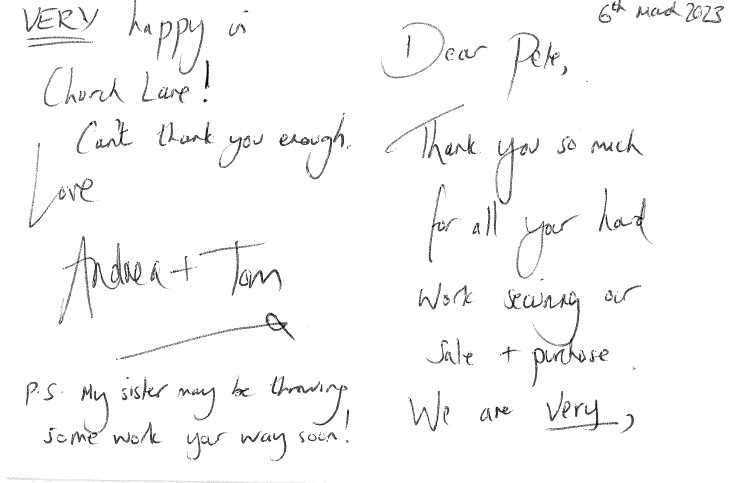 6th March 2023
Dear Pete,
Thank you so much
for all your hard
work securing our
sale + purchase.
We are very,
VERY happy in
Church Lane!
Can't thank you enough.
Love
Andrea + Tom
P.S. My sister may be throwing
some work your way soon!